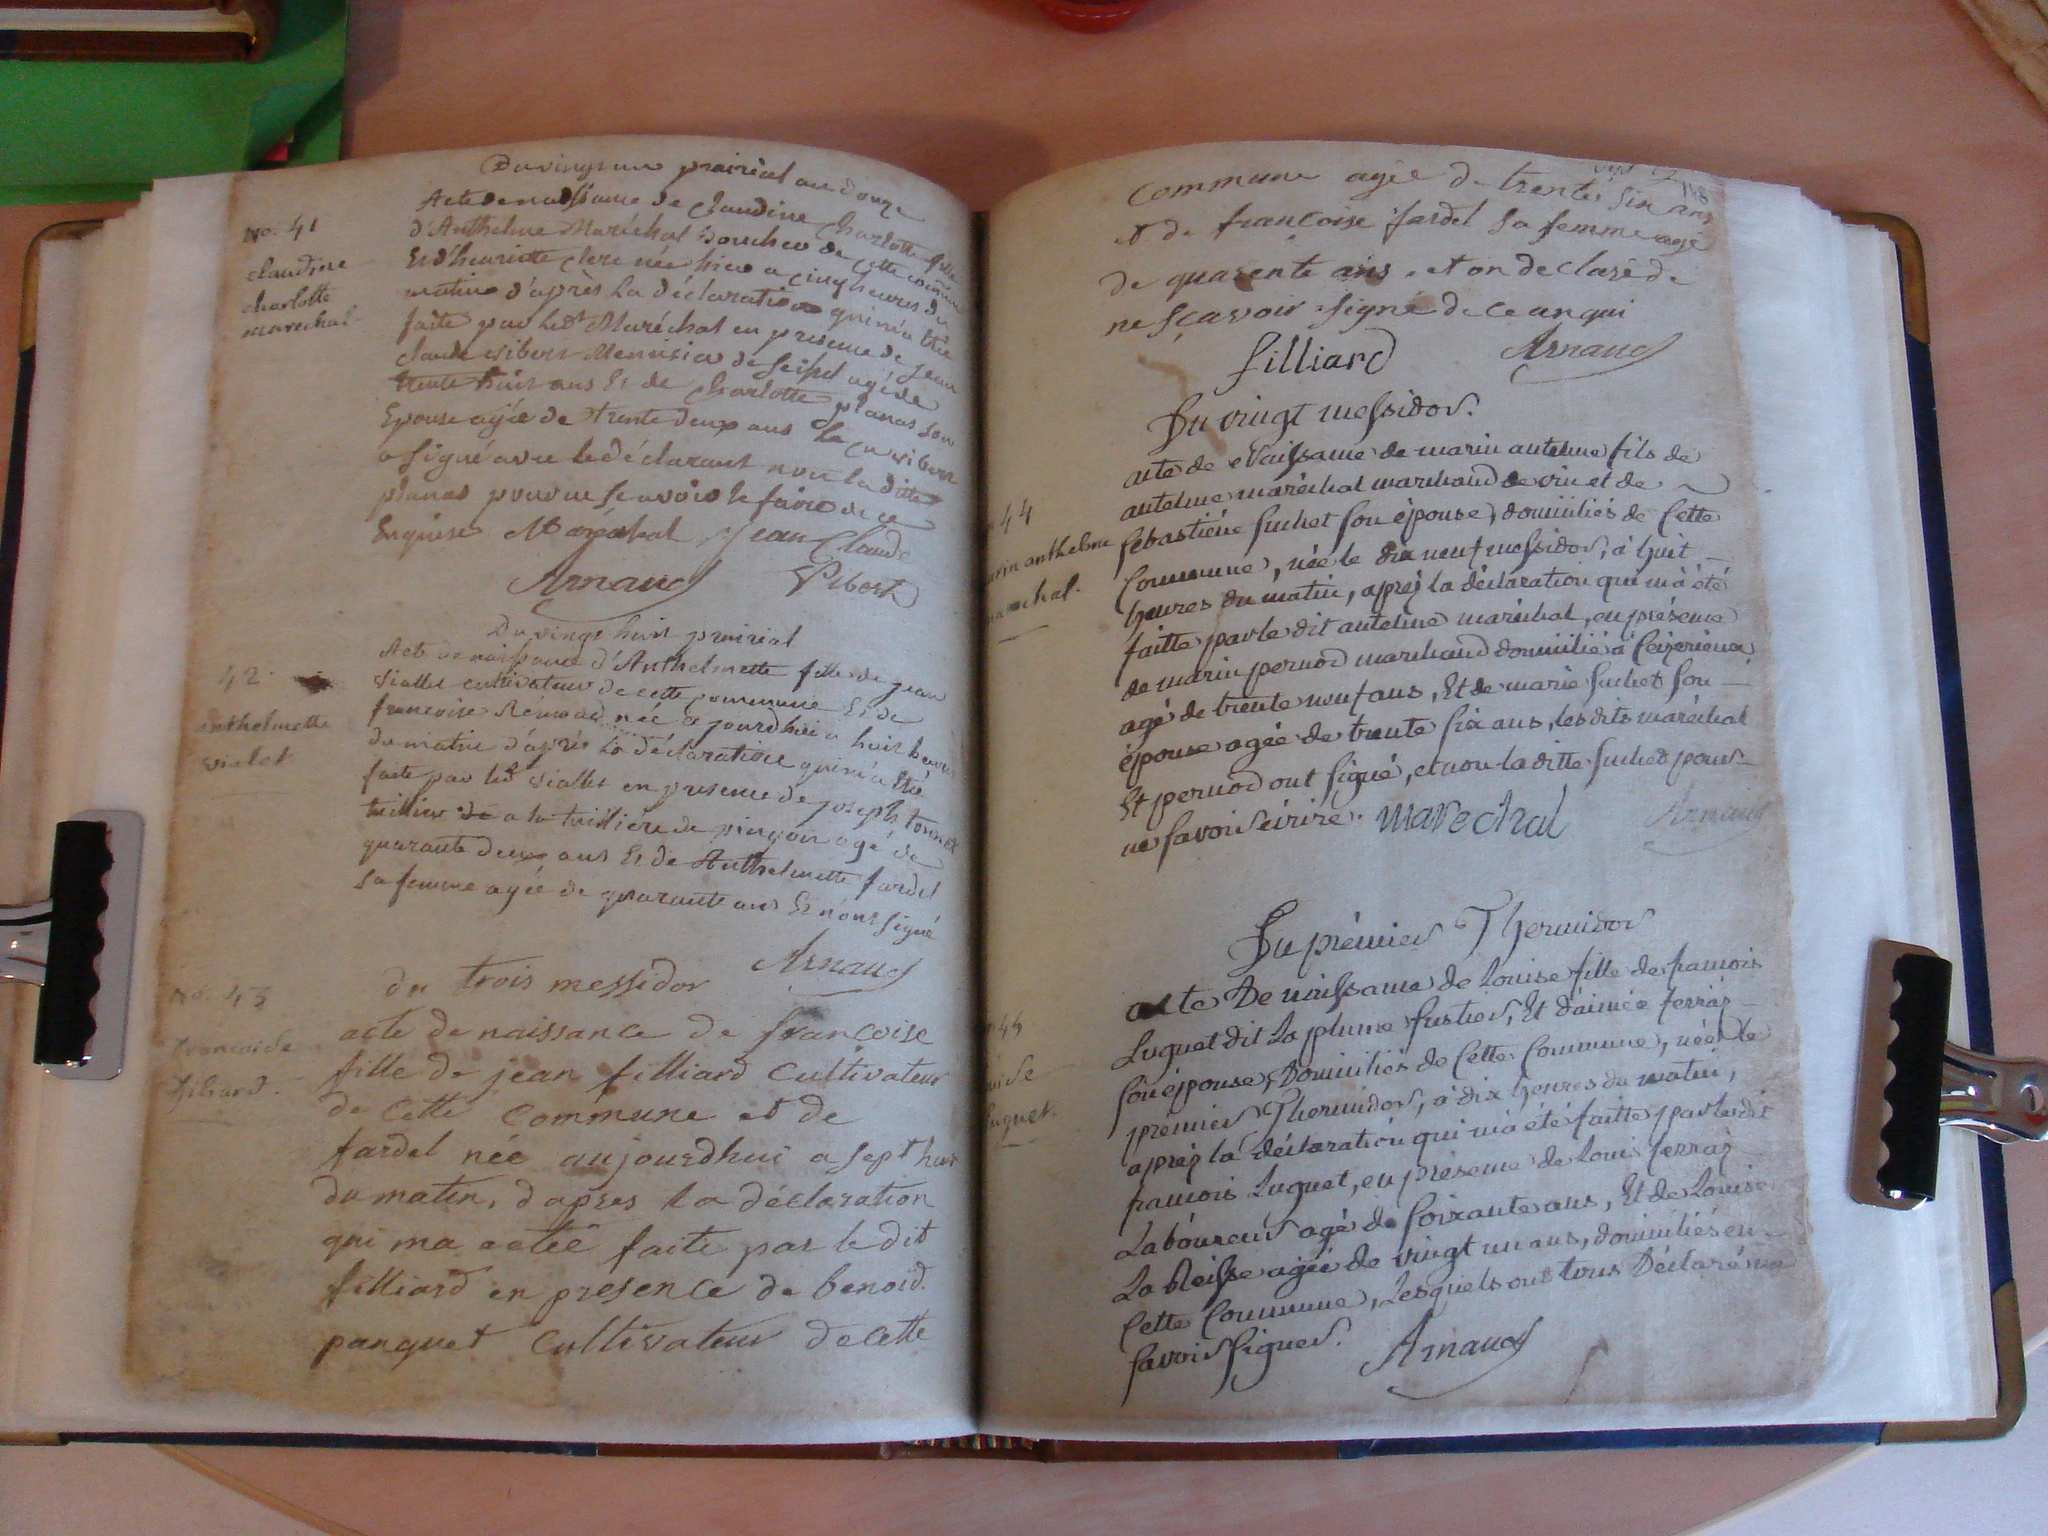 Du vingt un prairial an douze
No. 41
claudine
charlotte
marechal
Acte de naissance de Claudine Charlotte fille
d'Anthelme Maréchal Boucher de cette commune
Et d'henriette Clerc née hier a cinq heures du
matin d'après la déclaration qui m'a été
faite par ledt Maréchal en presence de Jean
claude vibert Menuisier de Seissel agé de
trente huit ans Et de Charlotte planas son
Epouse agée de trente deux ans le vibert
a signé avec le déclarant non la ditte
planas pour ne scavoir le faire de ce
Enquise Maréchal Jean Claude
Arnaud Vibert
Du vingt huit prairial
42
anthelmette
vialet
Acte de naissance d'Anthelmette fille de jean
Viallet cultivateur de cette commune Et de
francoise Renaud née a jourdhui a huit heures
du matin d'après la déclaration qui m'a été
faite par ledt Viallet en presence de joseph tonnet
tuillier de a la tuilliere de agé de
quarante deux ans Et de Anthelmette fardel
sa femme agée de quarante ans Et n'ont signé
Arnaud
du trois messidor
No. 43
francoise
filiard
acte de naissance de francoise
fille de jean filliard Cultivateur
de cette commune et de
fardel née aujourdhui a sept heur
du matin, dapres la déclaration
qui ma eteé faite par le dit
filliard en presence de benoid
panquet Cultivateur de cette
commune agée de trente six ans
et de francoise fardel sa femme agé
de quarente ans et on declaré de
ne sçavoir signé de ce anqui
filliard Arnaud
Du vingt messidor.
44
marin anthelme
marechal.
acte de Naissance de marin antelme fils de
antelme maréchal marchand de vin et de
sebastiene suchet son épouse, domiciliés de Cette
Commune, née le dix neuf messidor, à huit
heures du matin, après la déclaration qui m'a été
faitte par le dit antelme maréchal, en présence
de marin pernod marchand domicilié à
agé de trente neuf ans, Et de marie suchet son
épouse agée de trente six ans, les dits maréchal
Et pernod ont signé, et non la ditte suchet pour
ne savoir écrire. marechal Arnaud
Du prémier Thermidor
louise
luquet.
acte De naissance de Louise fille de francois
Luquet dit La plume fustier, Et d'aimée ferraz
son épouse, Domiciliés de Cette Commune, née le
premier Thermidor, à dix heures du matin,
après la déclaration qui m'a été faitte par le dit
francois Luquet, en présence de Louis ferraz
Laboureur agé de soixante ans, Et de Louise
La agée de vingt un ans, domiciliés en
Cette Commune, Lesquels ont tous Déclaré ne
savoir signer. Arnaud